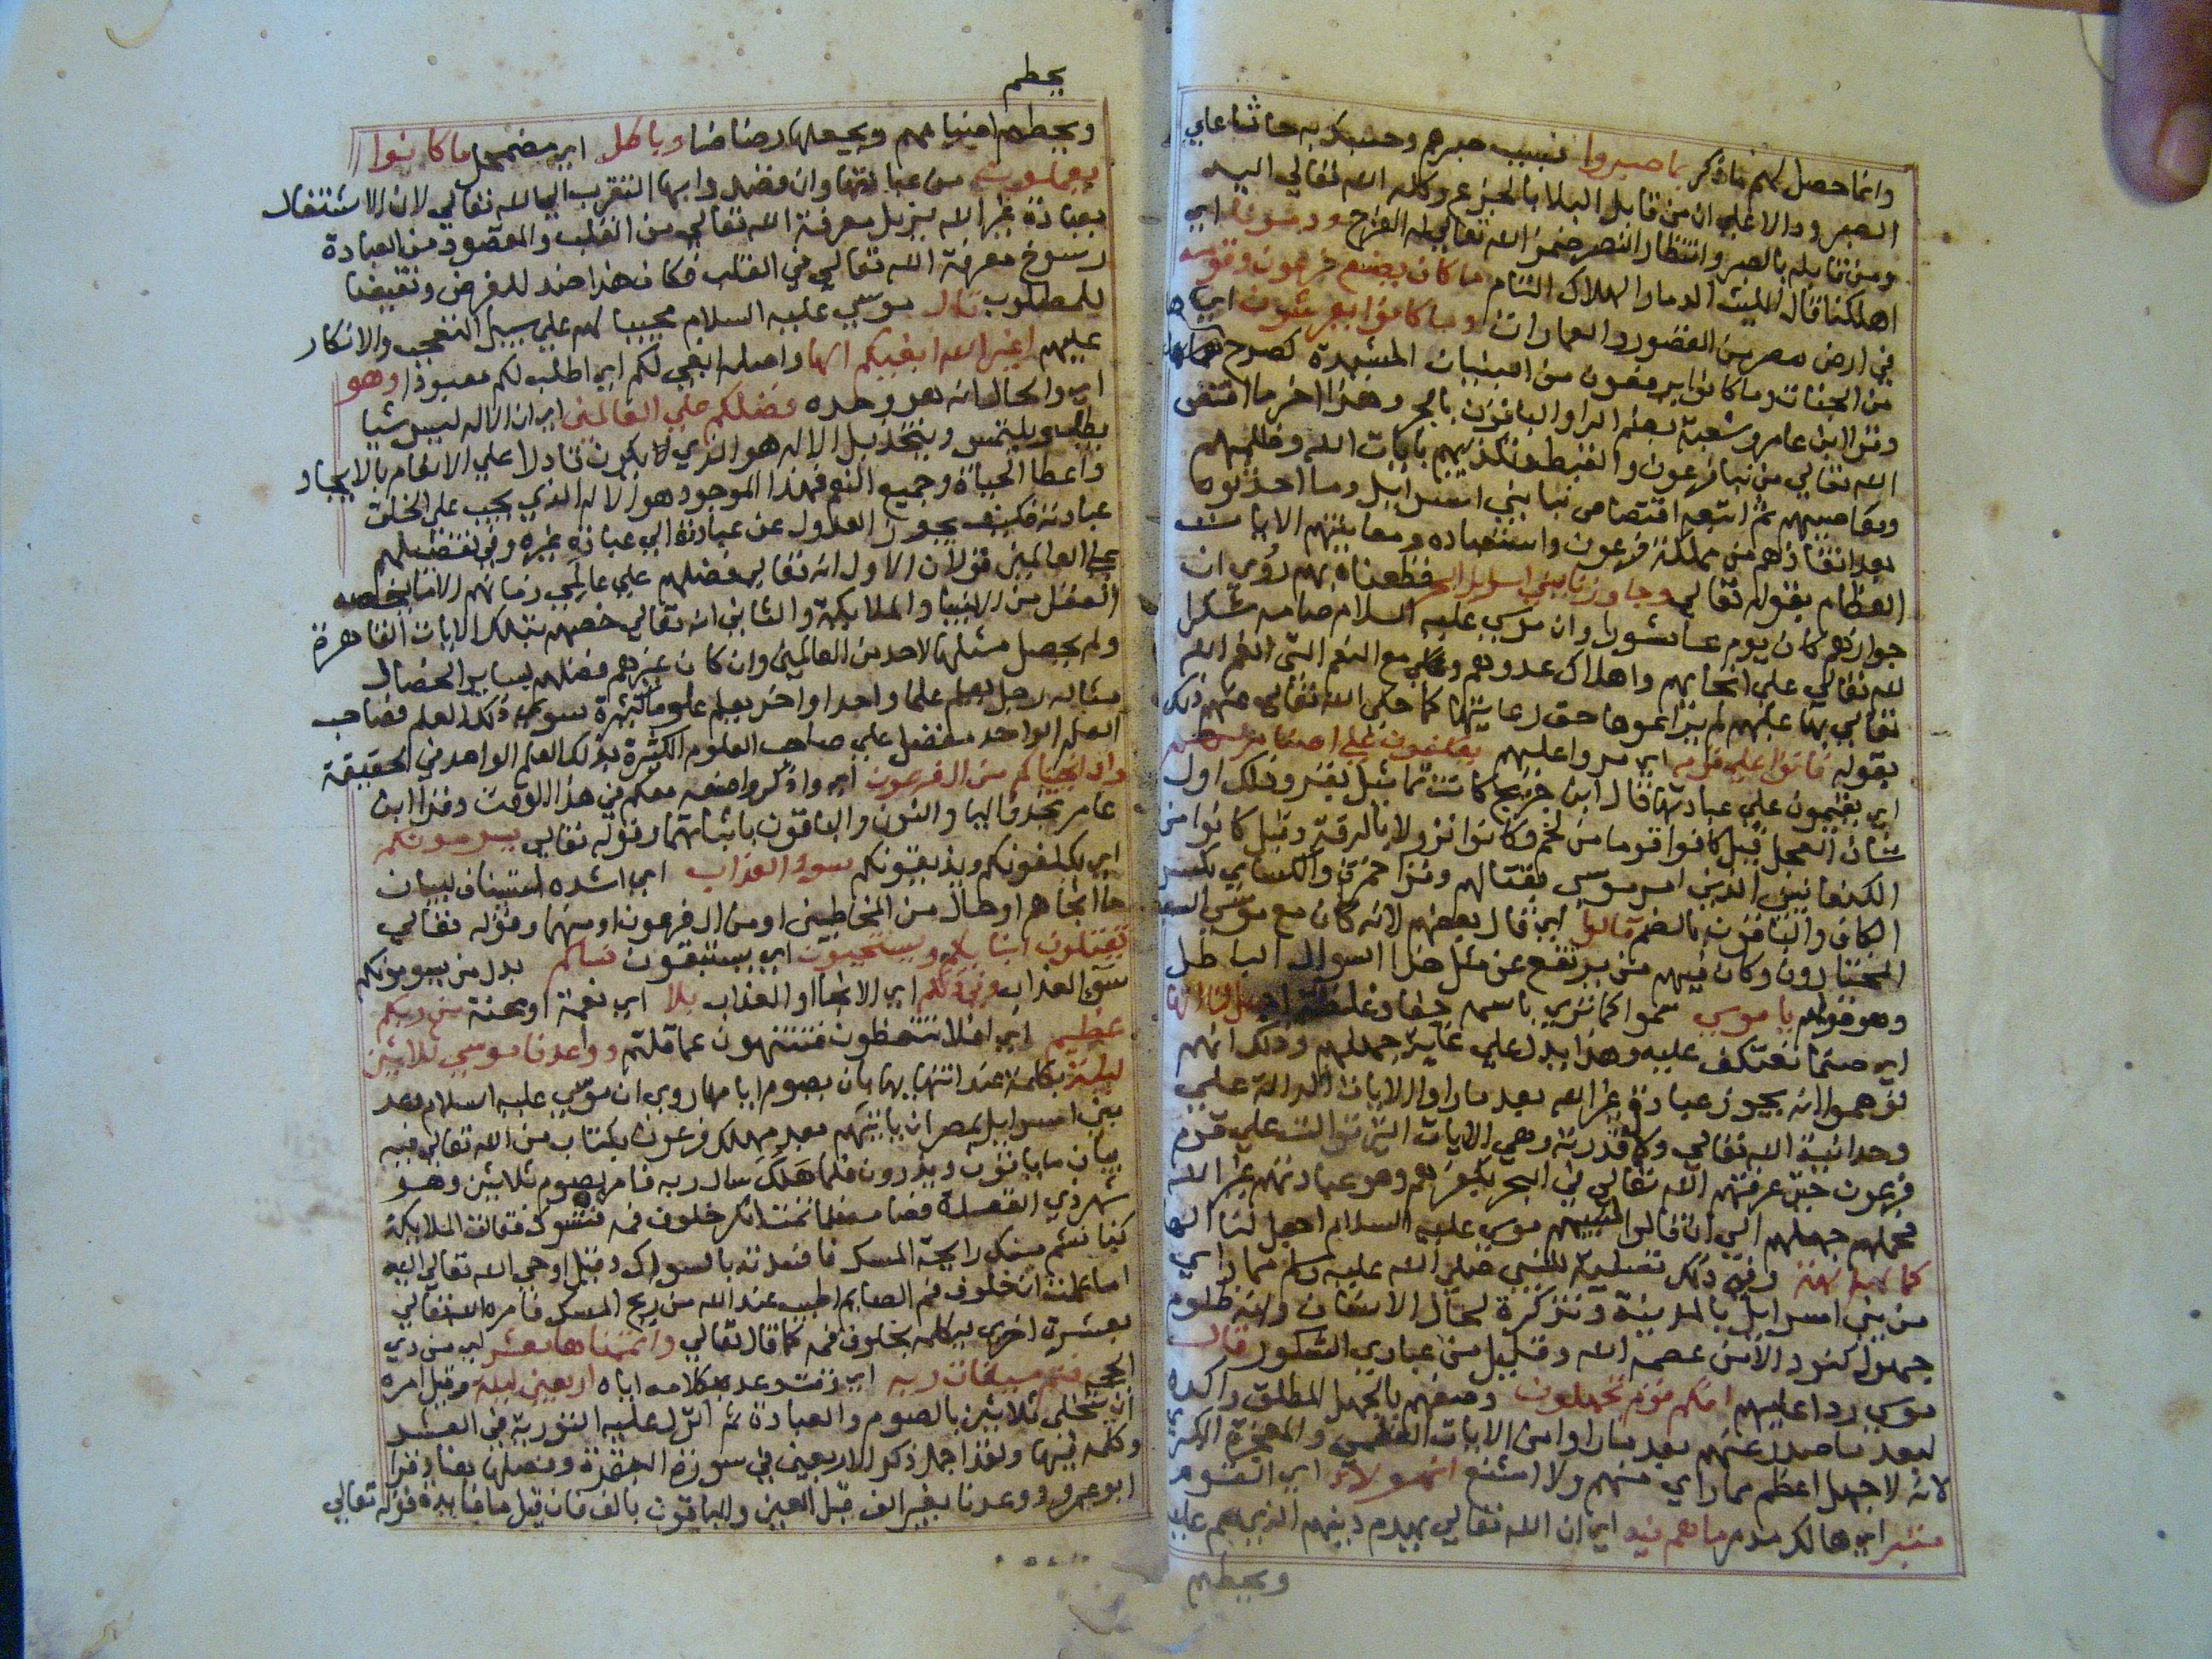 وانما حصل لهم ما ذكر بما صبروا بسبب صبرهم وحسبك به حاثا علي
الصبر ودالا علي ان من قابل البلا بالجزع وكله الله تعالي اليه
ومن قابله بالصبر وانتظار النصر ضمن الله تعالي له الفرج ودمرنا اي
اهلكنا قال الليث الدمار الهلاك التام ما كان يصنع فرعون وقومه
في ارض مصر من القصور والعمارات وما كانوا يعرشون اي
من الجنات وما كانوا يرفعون من البنيات المشيدة كصرح هامان
وقرا ابن عامر وشعبة بضم الرا والباقون بالجر وهذا اخر ما اقتص
الله تعالي من نبا فرعون والقبط وتكذيبهم بايات الله وظلمهم
ومعاصيهم ثم اتبعه اقتصاص نبا بني اسرايل وما احدثوه
بعد انقاذهم من مملكة فرعون واستعباده ومعاينتهم الايات
العظام بقوله تعالي وجاوزنا ببني اسرايل البحر فقطعناه بهم روي ان
جوازهم كان يوم عاشورا وان موسي عليه السلام صامه شكرا
لله تعالي علي انجايهم واهلاك عدوهم ومع النعم التي انعم الله
تعالي بها عليهم لم يراعوها حق رعايتها كما حكي الله تعالي عنهم ذلك
بقوله فاتوا علي قوم اي مروا عليهم يعكفون علي اصنام لهم
اي يقيمون علي عبادتها قال ابن جريج كانت تماثيل بقر وذلك اول
شان العجل قيل كانوا قوما من لخم وكانوا نزولا بالرقة وقيل كانوا من
الكنعانيين الذين امر موسي بقتالهم وقرا حمزة والكساي بكسر
الكاف والباقون بالضم قالوا اي قال بعضهم لانه كان مع موسي
المختارون وكان فيهم من يرتفع عن مثل هذا السوال الباطل
وهو قولهم يا موسي سموا كما تري باسمه جفا وغلظة اجعل لنا الها
اي صنما نعتكف عليه وهذا يدل علي غاية جهلهم وذلك انهم
توهموا انه يجوز عبادة غير الله بعد ما راوا الايات الدالة علي
وحدانية الله تعالي وكمال قدرته وهي الايات التي توالت علي قوم
فرعون حتي غرقهم الله تعالي في البحر بكفرهم وهو عبادتهم غير الله
فحملهم جهلهم الي ان قالوا لنبيهم موسي عليه السلام اجعل لنا الها
كما لهم الهة وفي ذلك تسلية للنبي صلي الله عليه وسلم مما راي
من بني اسرايل بالمدينة وتذكرة لحال الانسان وانه ظلوم
جهول كنود الا من عصمه الله وقليل من عبادي الشكور قال
موسي ردا عليهم انكم قوم تجهلون وصفهم بالجهل المطلق واكده
لبعد ما صدر عنهم بعد ما راوا من الايات العظمي والمعجزة الكبري
لانه لا جهل اعظم مما راي منهم ولا اشنع ان هولاء اي القوم
متبر اي هالك مدمر ما هم فيه اي ان الله تعالي يهدم دينهم الذي هم عليه
ويحطم
يحطم
ويحطم اصنامهم ويجعلها رضاضا وباطل اي مضمحل ما كانوا
يعملون من عبادتها وان قصدوا بها التقرب الي الله تعالي لان الاشتغال
بعبادة غير الله يزيل معرفة الله تعالي من القلب والمقصود من العبادة
رسوخ معرفة الله تعالي في القلب فكان هذا ضد للغرض ونقيضا
للمطلوب قال موسي عليه السلام مجيبا لهم علي سبيل التعجب والانكار
عليهم اغير الله ابغيكم الها واصله ابغي لكم اي اطلب لكم معبودا وهو
اي والحال انه هو وحده فضلكم علي العالمين اي ان الاله ليس شيا
يطلب ويلتمس ويتخذ بل الاله هو الذي يكون قادرا علي الانعام بالايجاد
واعطا الحياة وجميع النعم فهذا الموجود هو الاله الذي يجب علي الخلق
عبادته فكيف يجوز العدول عن عبادته الي عبادة غيره وفي تفضيلهم
علي العالمين قولان الاول انه تعالي فضلهم علي عالمي زمانهم الا ما يخصه
العقل من الانبيا والملايكة والثاني انه تعالي خصهم بتلك الايات القاهرة
ولم يحصل مثلها لاحد من العالمين وان كان غيرهم فضلهم بساير الخصال
مثاله رجل يعلم علما واحدا واخر يعلم علوما كثيرة سوي ذلك العلم فصاحب
العلم الواحد مفضل علي صاحب العلوم الكثيرة بذلك العلم الواحد في الحقيقة
واذ انجيناكم من ال فرعون اي واذكروا صنعه معكم في هذا الوقت وقرا ابن
عامر بحذف اليا والنون والباقون باثباتهما وقوله تعالي يسومونكم
اي يكلفونكم ويذيقونكم سوء العذاب اي اشده استيناف لبيان
ما انجاهم او حال من المخاطبين او من ال فرعون او منهما وقوله تعالي
يقتلون ابناءكم ويستحيون اي يستبقون نساكم بدل من يسومونكم
سوء العذاب وفي ذلكم اي الانجا او العذاب بلا اي نعمة او محنة من ربكم
عظيم اي افلا تتعظون فتنتهون عما قلتم وواعدنا موسي ثلاثين
ليلة نكلمه عند انتهايها بان يصوم ايامها روي ان موسي عليه السلام وعد
بني اسرايل بمصر ان ياتيهم بعد مهلك فرعون بكتاب من الله تعالي فيه
بيان ما ياتون ويذرون فلما هلك سال ربه فامره بصوم ثلاثين وهو
شهر ذي القعدة فصامه فلما تمت انكر خلوف فمه فتسوك فقالت الملايكة
كنا نشم منك رايحة المسك فافسدته بالسواك وقيل اوحي الله تعالي اليه
اما علمت ان خلوف فم الصايم اطيب عند الله من ريح المسك فامره الله تعالي
بعشرة اخري ليكلمه بخلوف فمه كما قال تعالي واتممناها بعشر اي من ذي
الحجة فتم ميقات ربه اي وقت وعده بكلامه اياه اربعين ليلة وقيل امره
ان يتخلي ثلاثين بالصوم والعبادة ثم انزل عليه التورية في العشر
وكلمه فيها ولقد اجمل ذكر الاربعين في سورة البقرة وفصلها هنا وقرا
ابو عمرو ووعدنا بغير الف قبل العين والباقون بالف فان قيل ما فايدة قوله تعالي